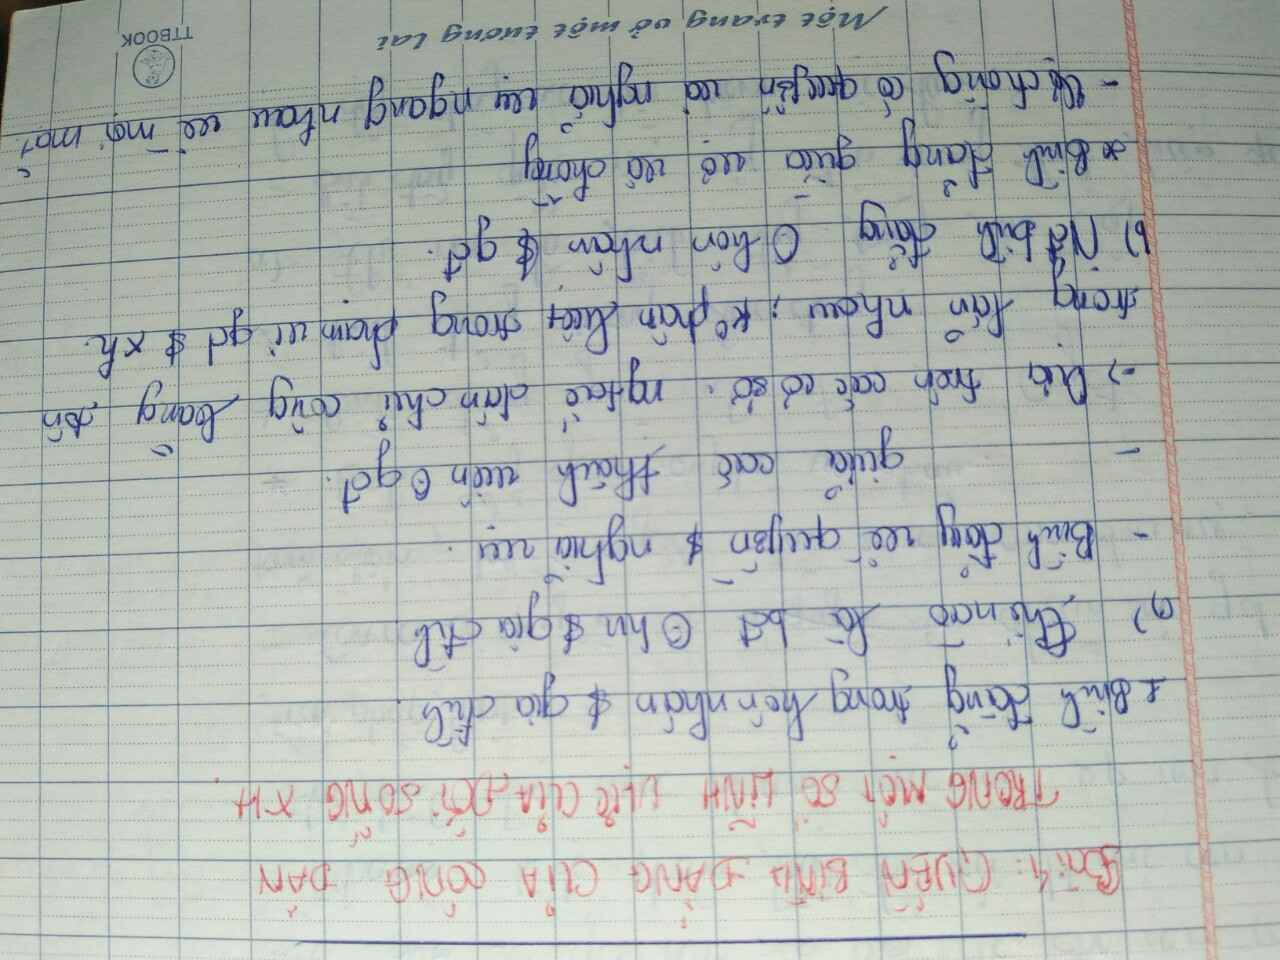 Bài 4: QUYỀN BÌNH ĐẲNG CỦA CÔNG DÂN
TRONG MỘT SỐ LĨNH VỰC CỦA ĐỜI SỐNG XH.
* Bình đẳng trong hôn nhân $ gia đình.
a) Thế nào là bđ hn $ gia đình
- Bình đẳng về quyền $ nghĩa vụ.
- giữa các thành viên gđ.
-> Dựa trên các cơ sở: ng tắc dân chủ công bằng tôn
trọng lẫn nhau; ko phân biệt trong phạm vi gđ $ xh.
b) Nd bình đẳng hôn nhân $ gđ.
* Bình đẳng giữa vợ và chồng
- Vợ chồng có quyền và nghĩa vụ ngang nhau về mọi mặt
Một trang vở một tương lai
TTBOOK